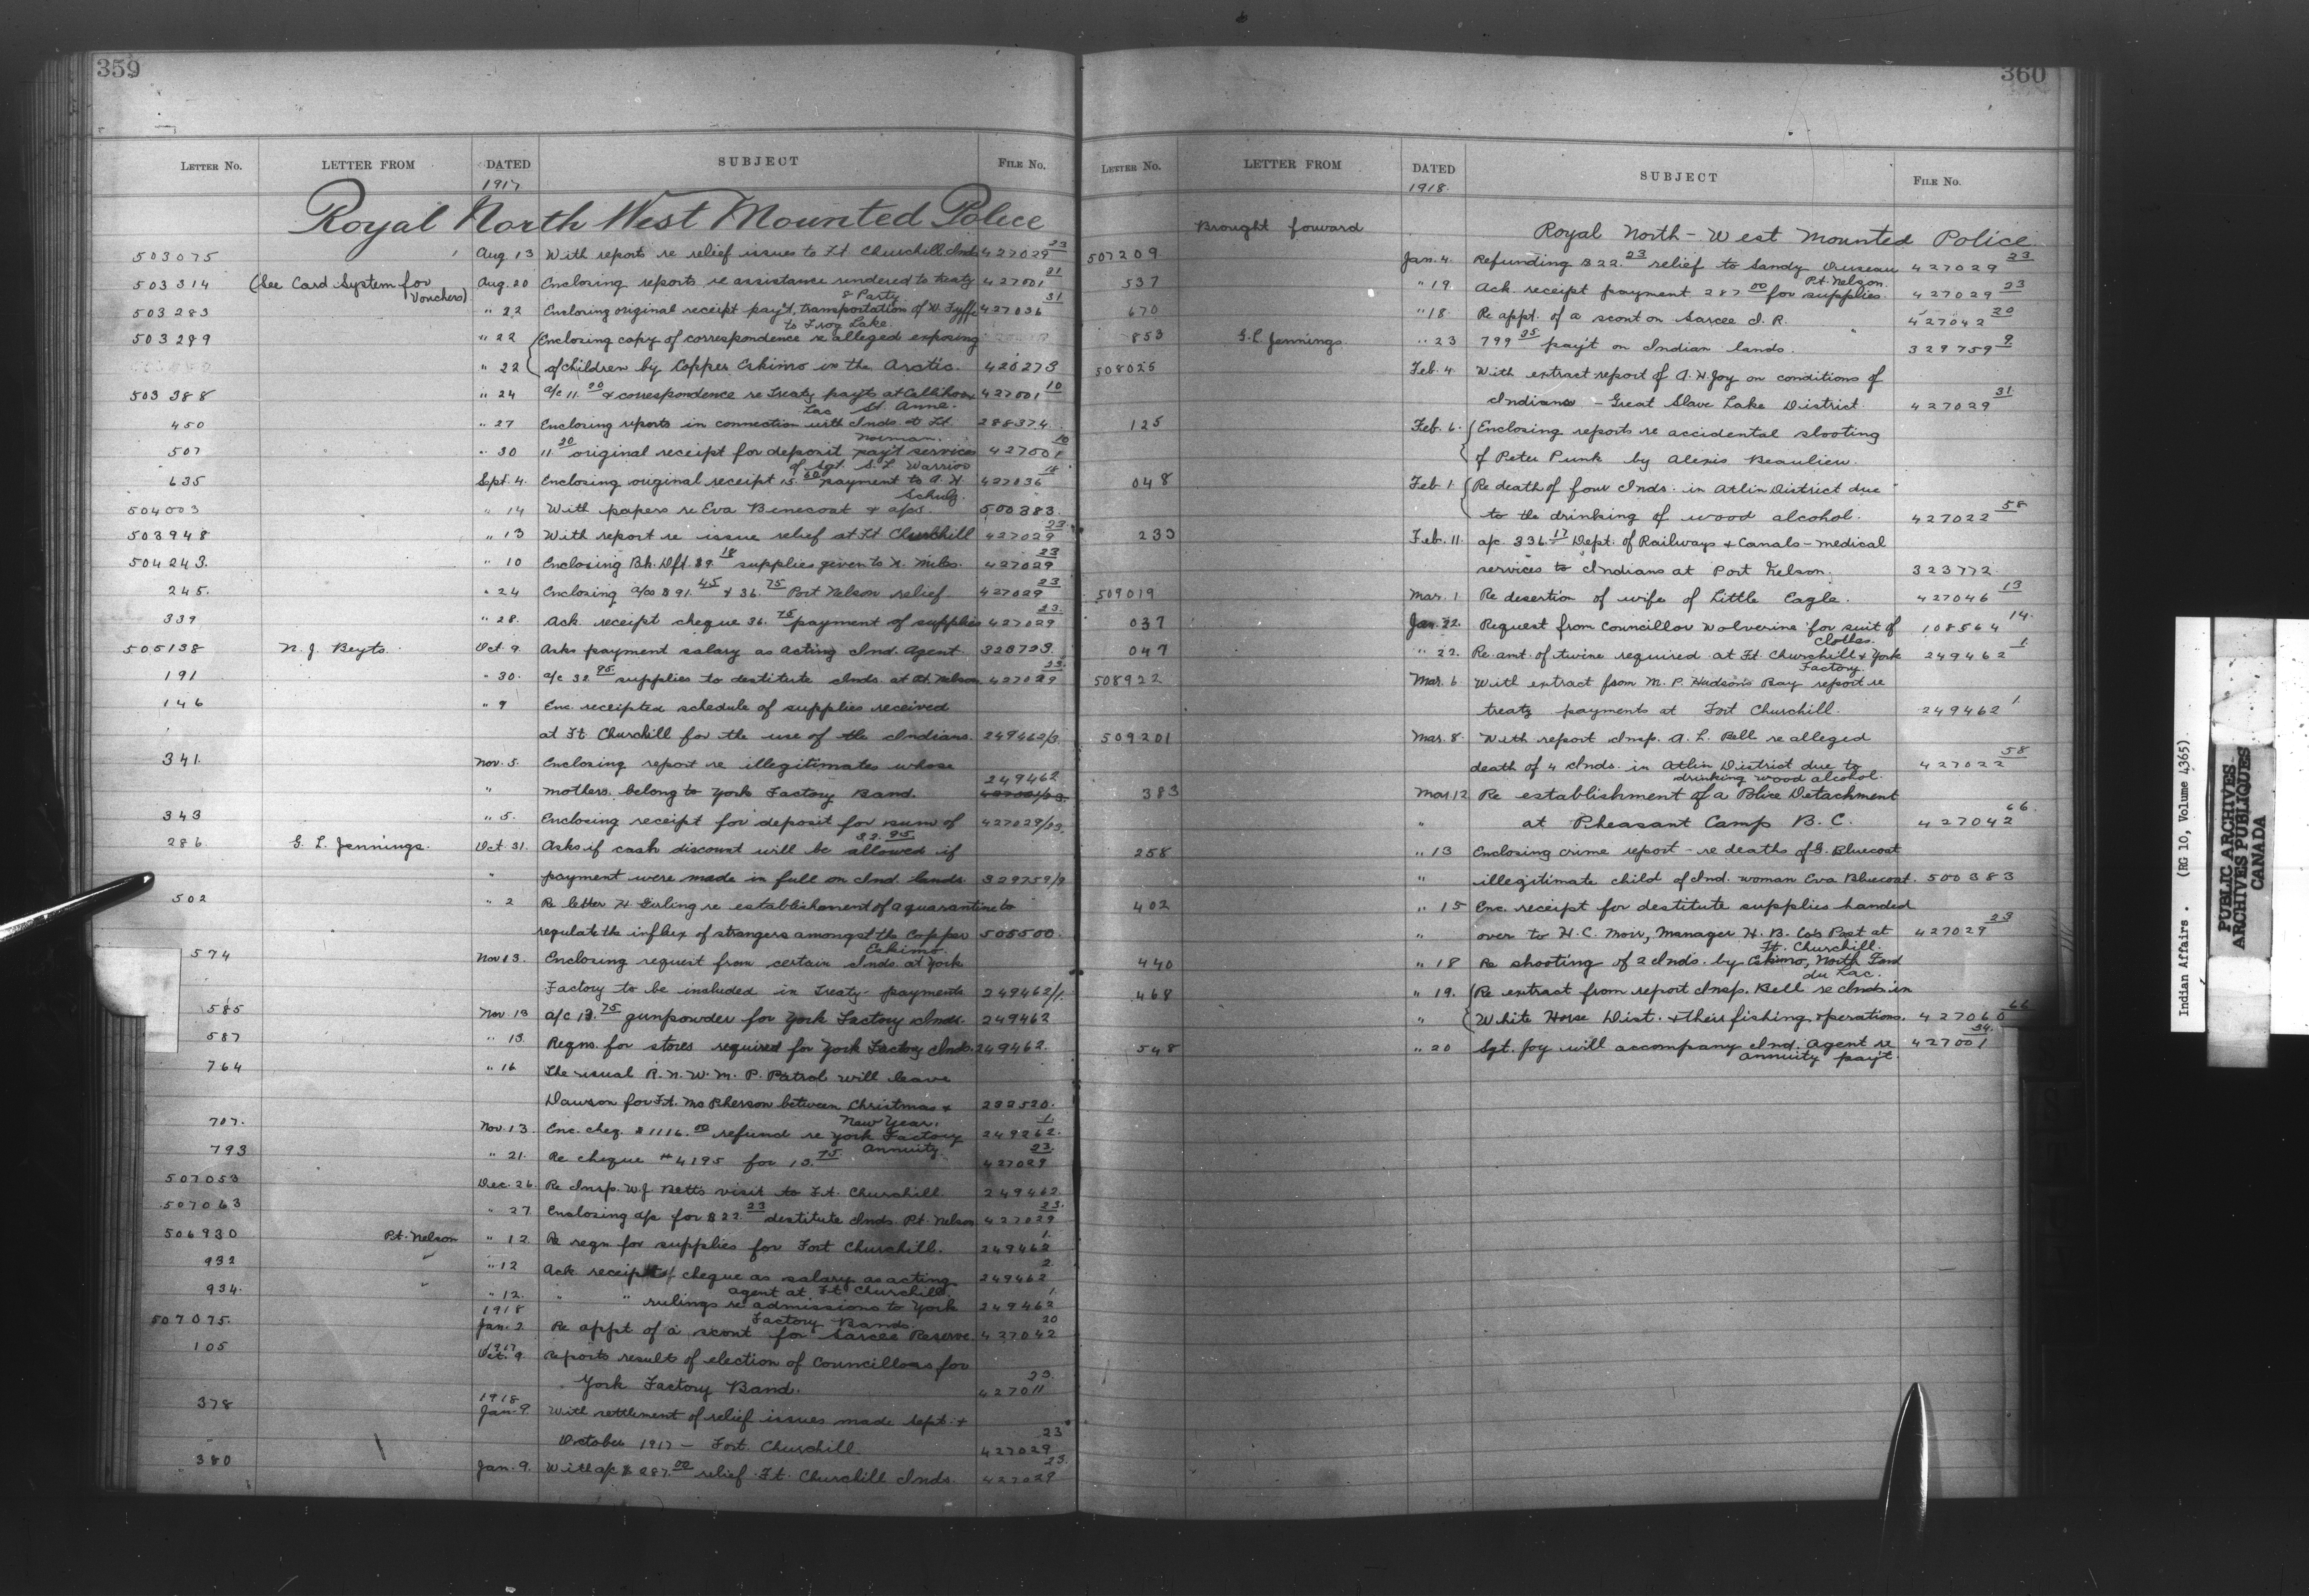 359
LETTER No. LETTER FROM DATED SUBJECT FILE No.
1917
Royal North West Mounted Police
503075 Aug 13 With reports re relief issues to Ft Churchill Inds 427029 23
503314 (See Card System for Vouchers) Aug. 20 Enclosing reports re assistance rendered to treaty 427001 21
& Party
503283 " 22 Enclosing original receipt pay't. transportation of W. Fyffe 427036 31
to Frog Lake.
503299 " 22 Enclosing copy of correspondence re alleged exposing
" 22 of children by Copper Eskimo in the Arctic. 420273
503388 " 24 a/c 11.20 & correspondence re Treaty pay'ts at Callihoo 427001 10
Lac St. Anne.
450 " 27 Enclosing reports in connection with Inds. at Ft. 288374
Norman.
507 " 30 11.20 original receipt for deposit pay't services 427001 10
of Sgt. S. L. Warrior
635 Sept. 4. Enclosing original receipt 15.60 payment to A. H. 427036 18
Schulz.
504003 " 14 With papers re Eva Benecoat & aps. 500383.
503948 " 13 With report re issue relief at Ft Churchill 427029 23
504243. " 10 Enclosing Bk. Dft. $9.18 supplies given to H. Miles. 427029 23
245. " 24 Enclosing a/cs $91.45 & 36.75 Port Nelson relief 427029 23
339 " 28. Ack receipt cheque 36.75 payment of supplies 427029 23
505138 N. J. Beyts. Oct. 9. Asks payment salary as Acting Ind. Agent 328723.
191 " 30. a/c 32.95 supplies to destitute Inds. at Pt. Nelson 427029 23
146 " 9 Enc. receipted schedule of supplies received
at Ft Churchill for the use of the Indians. 249462/3.
341. Nov. 5. Enclosing report re illegitimates whose
249462
" mothers belong to York Factory Band.
343 " 5. Enclosing receipt for deposit for sum of 427029/23.
32.95
286. G. L. Jennings. Oct. 31. Asks if cash discount will be allowed if
" payment were made in full on Ind. lands 329759/9
502 " 2 Re letter H. Girling re establishment of a quarantine to
regulate the influx of strangers amongst the Copper 505500.
Eskimo.
574 Nov 13. Enclosing request from certain Inds. at York
Factory to be included in Treaty payments 249462/1.
585 Nov. 13 a/c 13.75 gunpowder for York Factory Inds. 249462
587 " 13. Reqns. for stores required for York Factory Inds. 249462.
764 " 16 The usual R. N. W. M. P. Patrol will leave
Dawson for Ft. McPherson between Christmas & 292520.
New Year.
707. Nov. 13. Enc. cheq. $1116.00 refund re York Factory 249262. 1
Annuity.
793 " 21. Re cheque #4195 for 13.75 427029 23
507053 Dec. 26. Re Insp. W. J. Betts visit to Ft. Churchill. 249462
507063 " 27 Enclosing a/c for $22.23 destitute Inds. Pt. Nelson 427029 23.
506930 Pt. Nelson " 12 Re reqn for supplies for Fort Churchill. 249462 1.
932 " " 12 Ack. receipt of cheque as salary as acting 249462 2
agent at Ft Churchill.
934. " " 12. " " rulings re admissions to York 249462 1.
1918 Factory Bands.
507075. Jan. 2 Re appt of a scout for Sarcee Reserve. 427042 20
105 1917 Oct. 9 Reports result of election of Councillors for
York Factory Band. 427011 23.
378 1918 Jan. 9. With settlement of relief issues made Sept. &
October 1917 — Fort Churchill. 427029 23
380 Jan. 9. With a/c $287.00 relief Ft. Churchill Inds. 427029 23.
360
LETTER No. LETTER FROM DATED SUBJECT FILE No.
1918.
Brought forward Royal North-West Mounted Police
507209 Jan. 4. Refunding $22.23 relief to Sandy 427029 23
Pt. Nelson.
537 " 19. Ack. receipt payment 287.00 for supplies. 427029 23
670 " 18. Re appt. of a scout on Sarcee I. R. 427042 20
853 G. L. Jennings. " 23 799.35 pay't on Indian lands. 329759 9
508025 Feb. 4. With extract report of A. H. Joy on conditions of
Indians — Great Slave Lake District. 427029 31
125 Feb. 6. Enclosing reports re accidental shooting
of Peter Punk by Alexis Beaulieu.
048 Feb 1. Re death of four Inds. in Atlin District due
to the drinking of wood alcohol. 427022 58
233 Feb. 11. a/c. 336.17 Dept. of Railways & Canals — medical
services to Indians at Port Nelson. 323772.
509019 Mar. 1. Re desertion of wife of Little Eagle. 427046 13
037 Jan. 22. Request from Councillor Wolverine for suit of 108564 14.
Clothes.
047 " 22. Re amt. of twine required at Ft. Churchill & York 249462 1.
Factory.
508922 Mar. 6. With extract from M. P. Hudson's Bay report re
treaty payments at Fort Churchill. 249462 1.
509201 Mar. 8. With report Insp. A. L. Bell re alleged
death of 4 Inds. in Atlin District due to 427022 58
drinking wood alcohol.
383 Mar. 12 Re establishment of a Police Detachment
" at Pheasant Camp B. C. 427042 66
258 " 13 Enclosing crime report — re deaths of G. Bluecoat
" illegitimate child of Ind. woman Eva Bluecoat. 500383
402 " 15 Enc. receipt for destitute supplies handed
" over to H. C. Moir, Manager H. B. Co's Post at 427029 23
Ft. Churchill.
440 " 18 Re shooting of 2 Inds. by Eskimo, North Fond
du Lac.
468 " 19. Re extract from report Insp. Bell re Inds in
" White Horse Dist. & their fishing operations. 427060 66
548 " 20 Sgt. Joy will accompany Ind. Agent re 427001 34.
annuity pay't.
Indian Affairs. (RG 10, Volume 4365)
PUBLIC ARCHIVES
ARCHIVES PUBLIQUES
CANADA